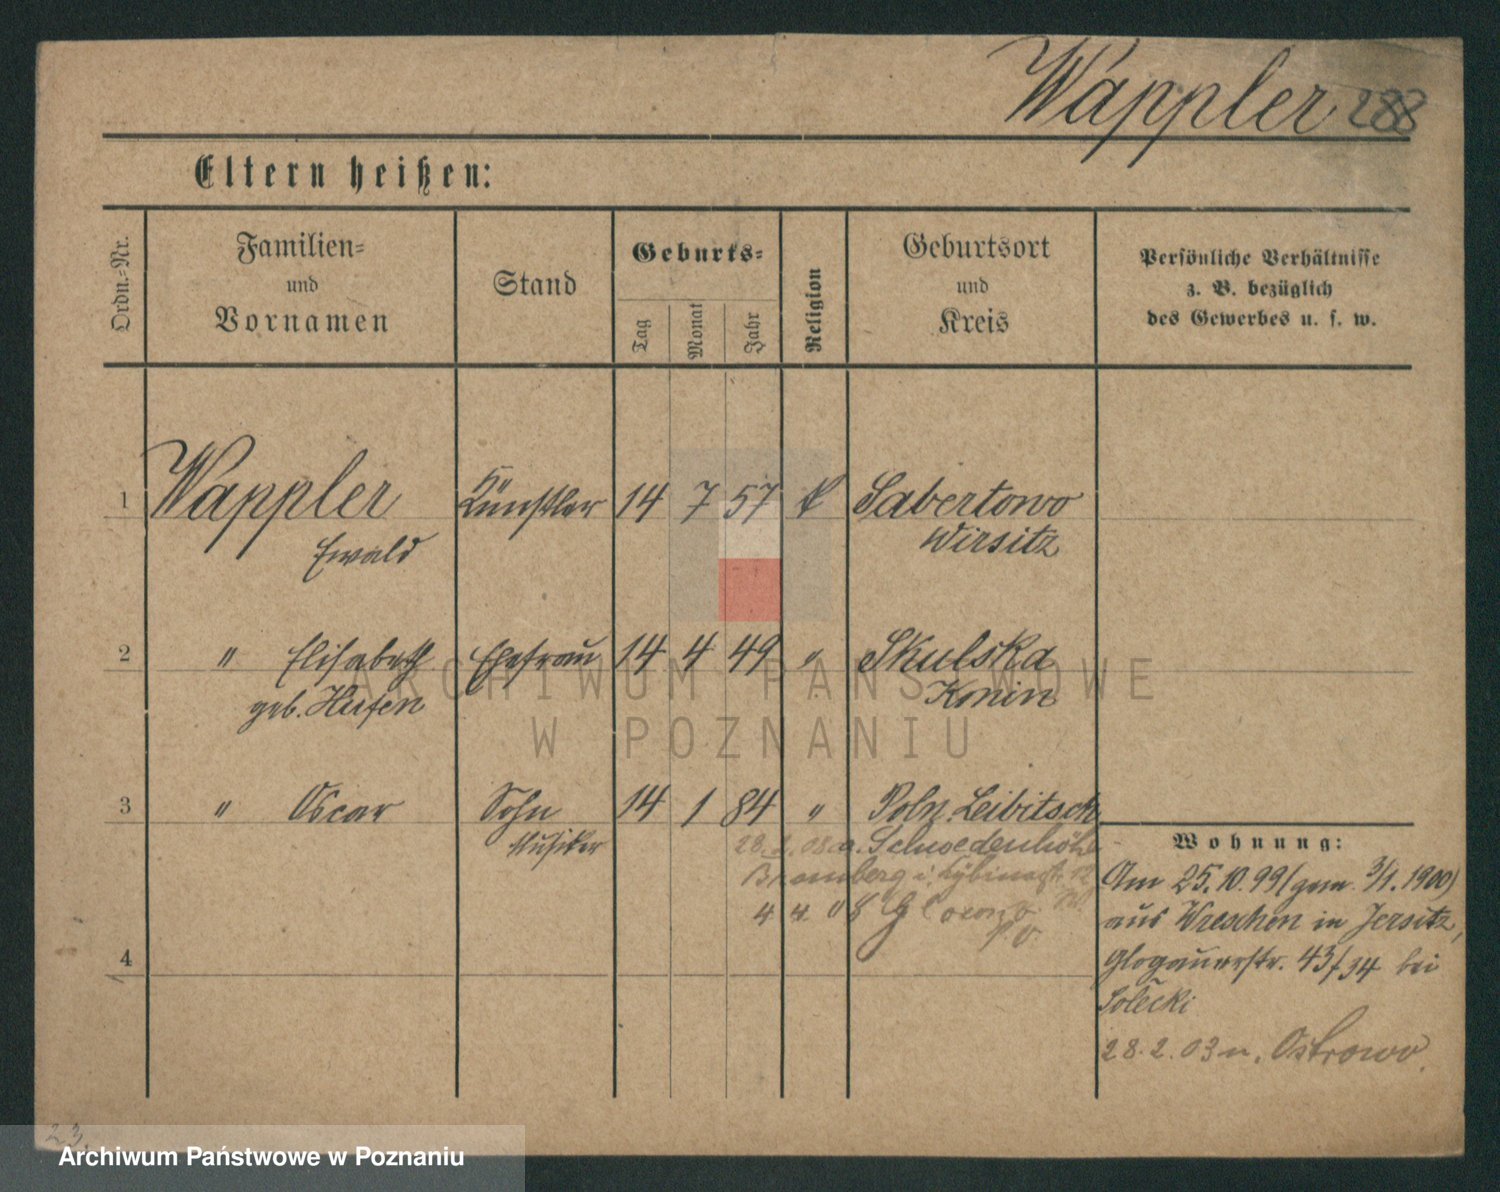 Wappler 288
Eltern heißen:
Ordn.-Nr.
Familien-
und
Vornamen
Stand
Geburts-
Tag
Monat
Jahr
Religion
Geburtsort
und
Kreis
Persönliche Verhältnisse
z. B. bezüglich
des Gewerbes u. s. w.
1 Wappler Künstler 14 7 57 k Sabertowo
Ewald Wirsitz
2 " Elisabeth Ehefrau 14 4 49 " Skulska
geb. Konin
3 " Oscar Sohn 14 1 84 " Poln. Leibitsch
Musiker
Schwedenhöhe
Bromberg
4
Wohnung:
Am 25.10.99 (gem. 3/1. 1900)
aus Wreschen in Jersitz,
Glogauerstr. 43/34 bei
Solecki
28.2.03 n. Ostrowo.
23.
ARCHIWUM PAŃSTWOWE
W POZNANIU
Archiwum Państwowe w Poznaniu